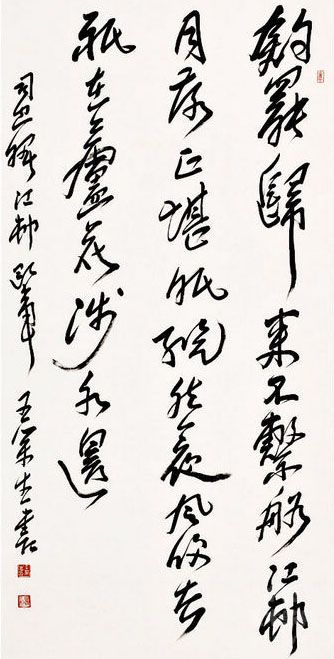 釣罷歸來不繫船江邨
月落正堪眠縱然一夜風吹去
祇在蘆花淺水邊
司空曙江邨即事 王生書